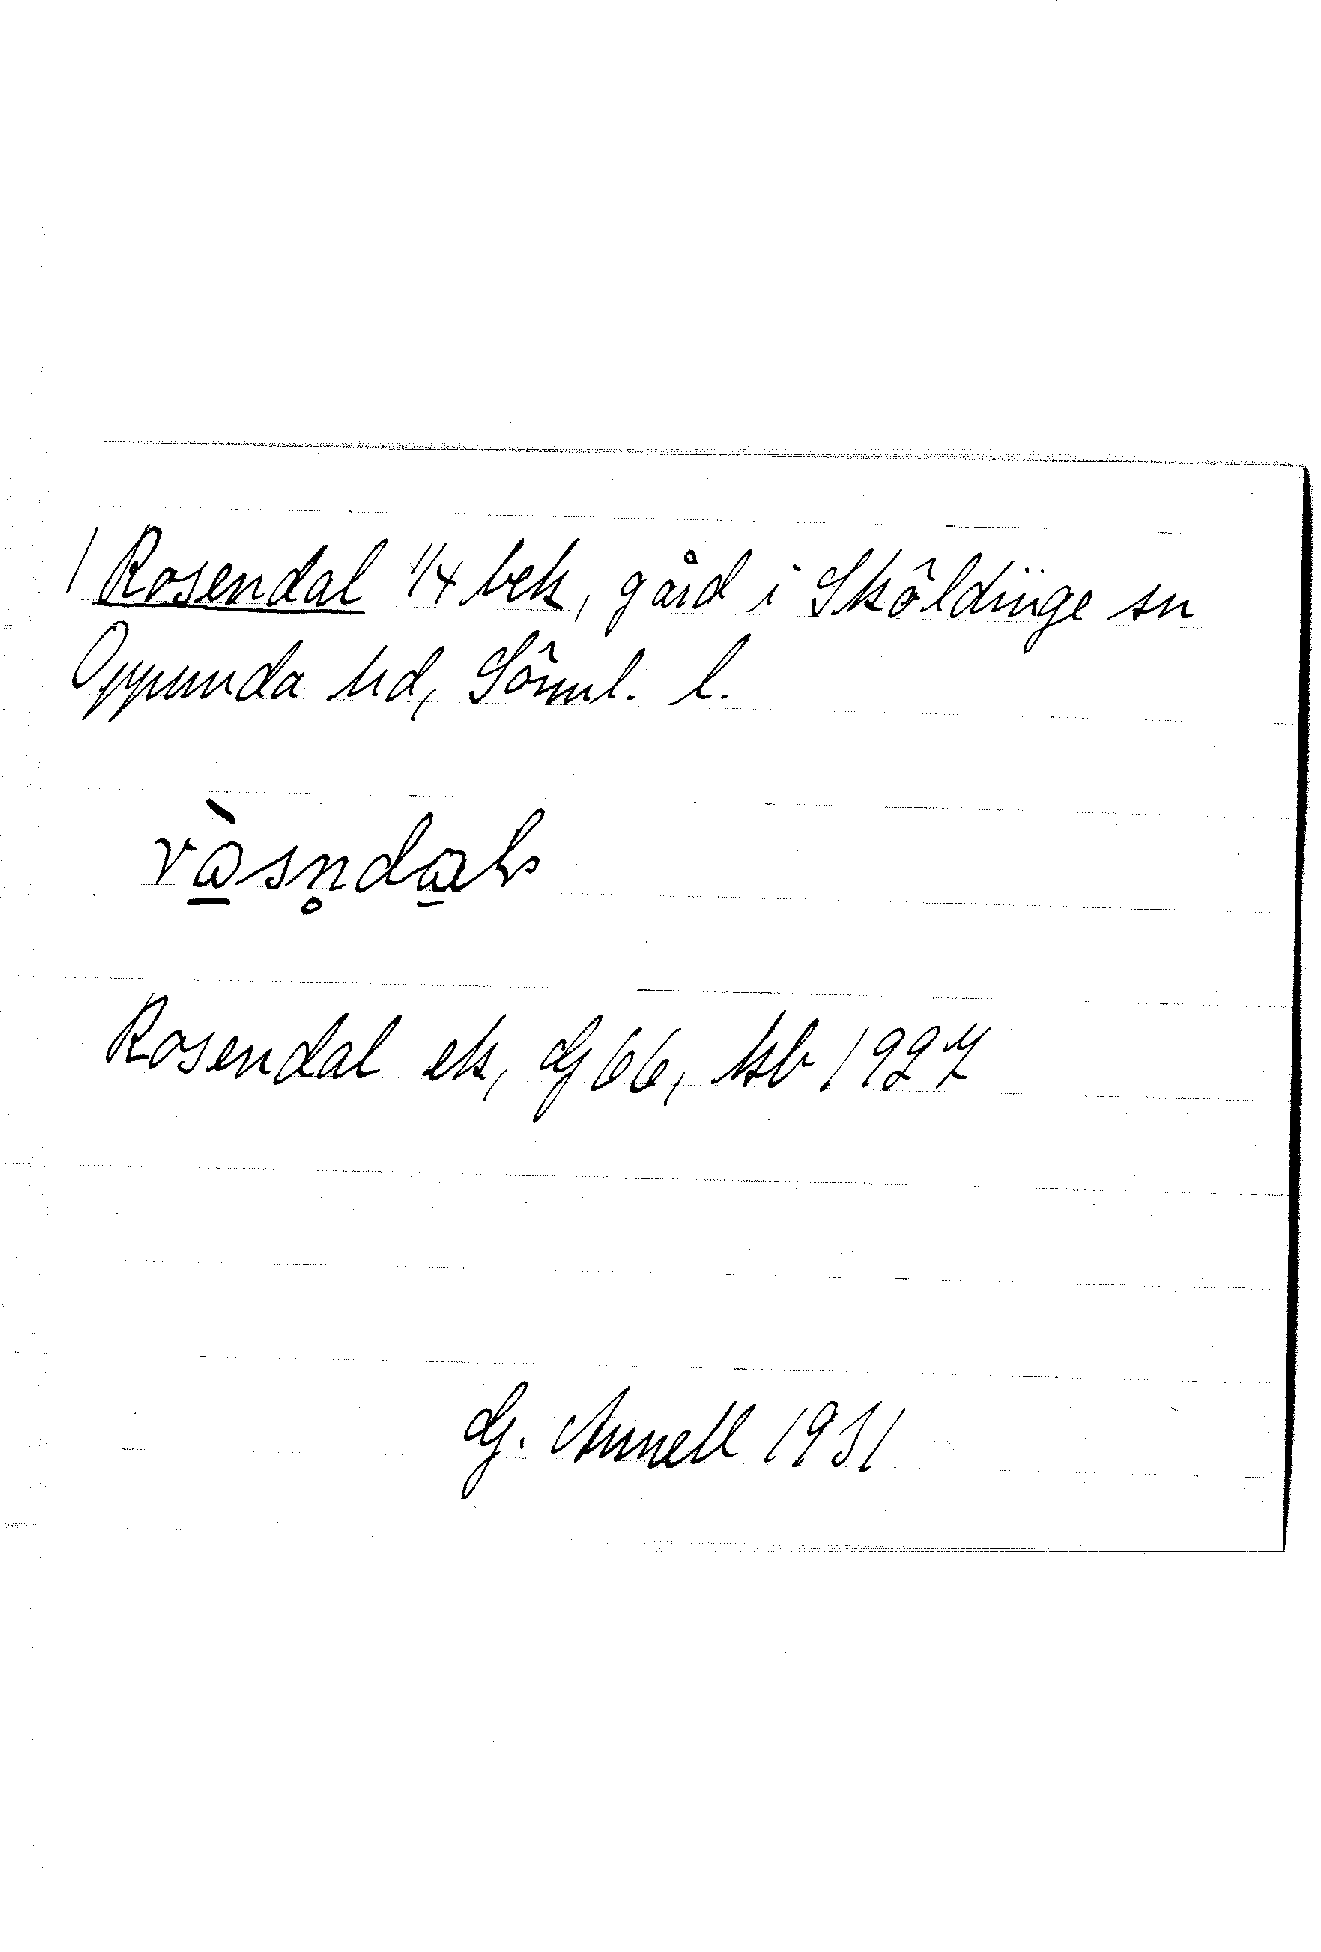 / Rosendal 1/4 bek, gård i Sköldinge sn
Oppunda hd, Söml. l.
Rosendal ek, G 66, hsb 1927
G. Annell 1931